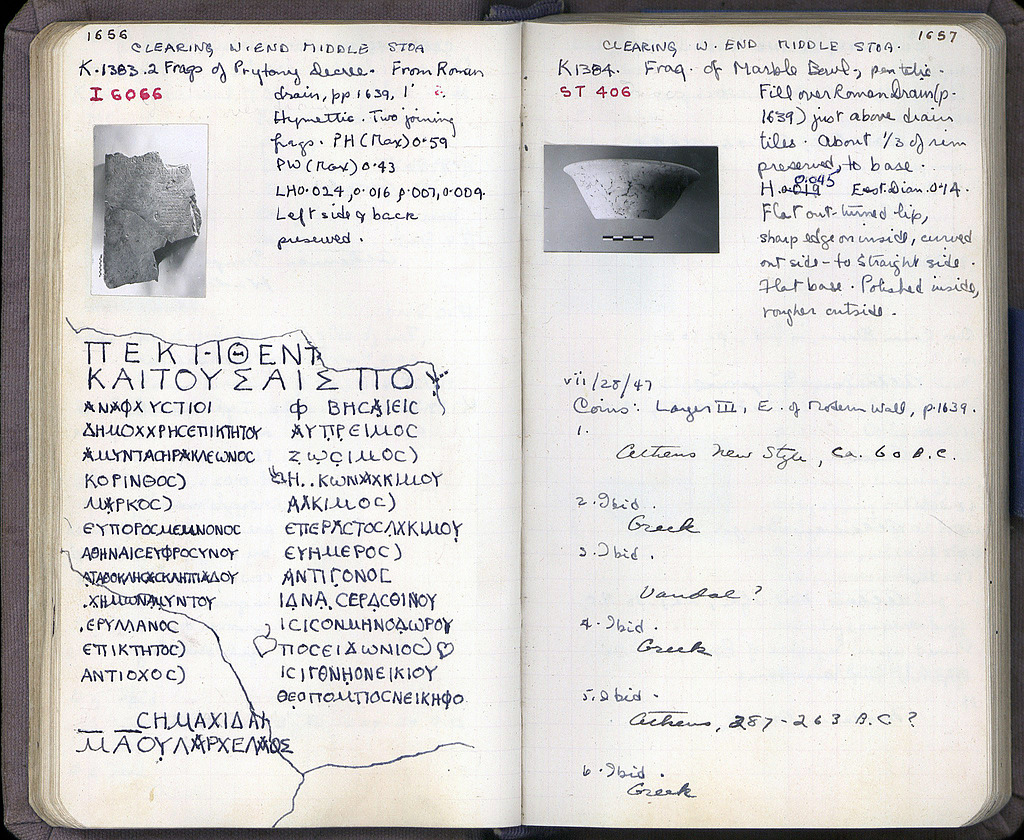 1656
CLEARING W. END MIDDLE STOA
K.1383. 2 Frags of Prytany decree. From Roman
I 6066
drain, pp 1639, 1'
Hymettic. Two joining
frags. PH (Max) 0.59
PW (Max) 0.43
LH 0.024, 0.016 0.007, 0.009.
Left side & back
preserved.
ΚΑΙΤΟΥΣΑΙΣΠΟΥ
ΑΝΑΦΛΥСΤΙΟΙ Φ ΒΗСΑΙΕΙС
ΔΗΜΟΧΑΡΗСΕΠΙΚΤΗΤΟΥ ΑΥΠΡΕΙΜΟС
ΑΜΥΝΤΑСΗΡΑΚΛΕΩΝΟС ΖΩСΙΜΟС)
ΚΟΡΙΝΘΟС) Η..ΚΩΝΑΛΚΙΜΟΥ
ΜΑΡΚΟС) ΑΛΚΙΜΟС)
ΕΥΠΟΡΟСΜΕΜΝΟΝΟС ΕΠΕΡΑСΤΟСΑΛΚΙΜΟΥ
ΑΘΗΝΑΙСΕΥΦΡΟСΥΝΟΥ ΕΥΗΜΕΡΟС)
ΑΝΤΙΓΟΝΟС
.ΕΡΥΛΛΙΑΝΟС ΙСΙСΟΝΜΗΝΟΔΩΡΟΥ
ΕΠΙΚΤΗΤΟС) ΠΟСΕΙΔΩΝΙΟС)
ΑΝΤΙΟΧΟС)
ΘΕΟΠΟΜΠΟСΝΕΙΚΗΦΟ
СΗΜΑΧΙΔΑΙ
ΜΑΟΥΛΑΡΧΕΛΑΟΣ
1657
CLEARING W. END MIDDLE STOA.
K1384. Frag. of Marble Bowl, pentelic.
ST 406
Fill over Roman Drain (p.
1639) just above drain
tiles. About 1/3 of rim
preserved, to base.
0.045
H. 0.019 Est. Diam. 0.14.
Flat out-turned lip,
sharp edge on inside, curved
out side - to straight side.
Flat base. Polished inside,
rougher outside.
vii/28/47
Coins: Layer III, E. of Modern Wall, p. 1639.
1.
Athens New Style, Ca. 60 B.C.
2. Ibid.
Greek
3. Ibid.
Vandal?
4. Ibid.
Greek
5. Ibid.
Athens, 287-263 B.C.?
6. Ibid.
Greek